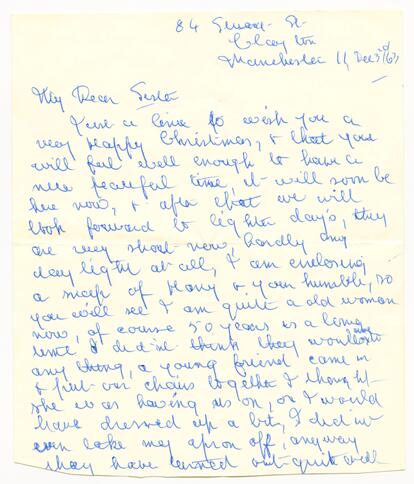 84 St.
Clayton
Manchester 11, Dec 3rd/63
My Dear Sister
Just a line to wish you a
very Happy Christmas, & that you
will feel well enough to have a
nice peaceful time, it will soon be
here now, & after that we will
look forward to lighter days, they
are very short now, hardly any
day light at all, I am enclosing
a snap of Harry & your humble, so
you will see I am quite a old woman
now, of course 50 years is a long
time I didn't think they would
any thing, a young friend came in
& put our chairs together I thought
she was having us on, or I would
have dressed up a bit, I didn't
even take my apron off, anyway
they have turned out quite well